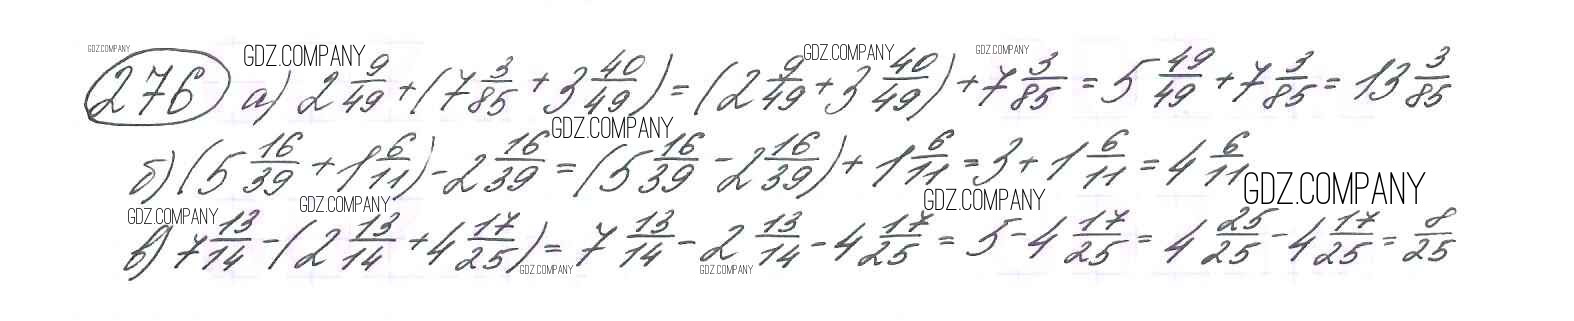 GDZ.COMPANY GDZ.COMPANY GDZ.COMPANY GDZ.COMPANY
276 а) 2 9/49 + (7 3/85 + 3 40/49) = (2 9/49 + 3 40/49) + 7 3/85 = 5 49/49 + 7 3/85 = 13 3/85
GDZ.COMPANY
б) (5 16/39 + 1 6/11) - 2 16/39 = (5 16/39 - 2 16/39) + 1 6/11 = 3 + 1 6/11 = 4 6/11
GDZ.COMPANY GDZ.COMPANY GDZ.COMPANY GDZ.COMPANY
в) 7 13/14 - (2 13/14 + 4 17/25) = 7 13/14 - 2 13/14 - 4 17/25 = 5 - 4 17/25 = 4 25/25 - 4 17/25 = 8/25
GDZ.COMPANY GDZ.COMPANY